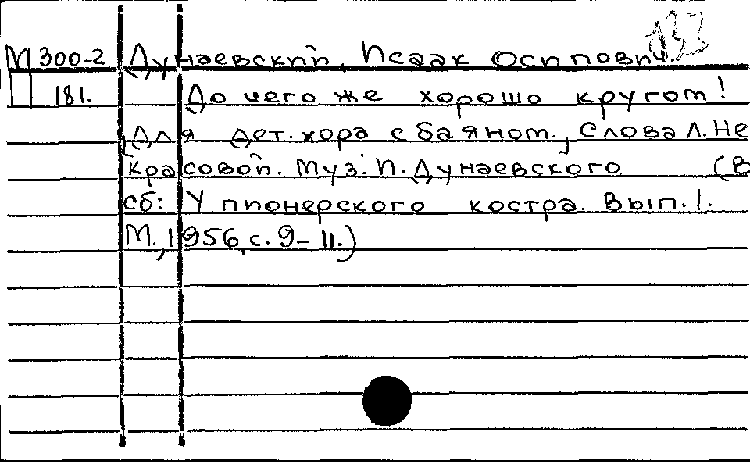 М 300-2 Дунаевский, Исаак Осипович.
181. До чего же хорошо кругом!
Для дет. хора с баяном., Слова Л. Не
красовой. Муз. И. Дунаевского (В
сб: У пионерского костра. Вып. 1.
М., 1956, с. 9-11.)